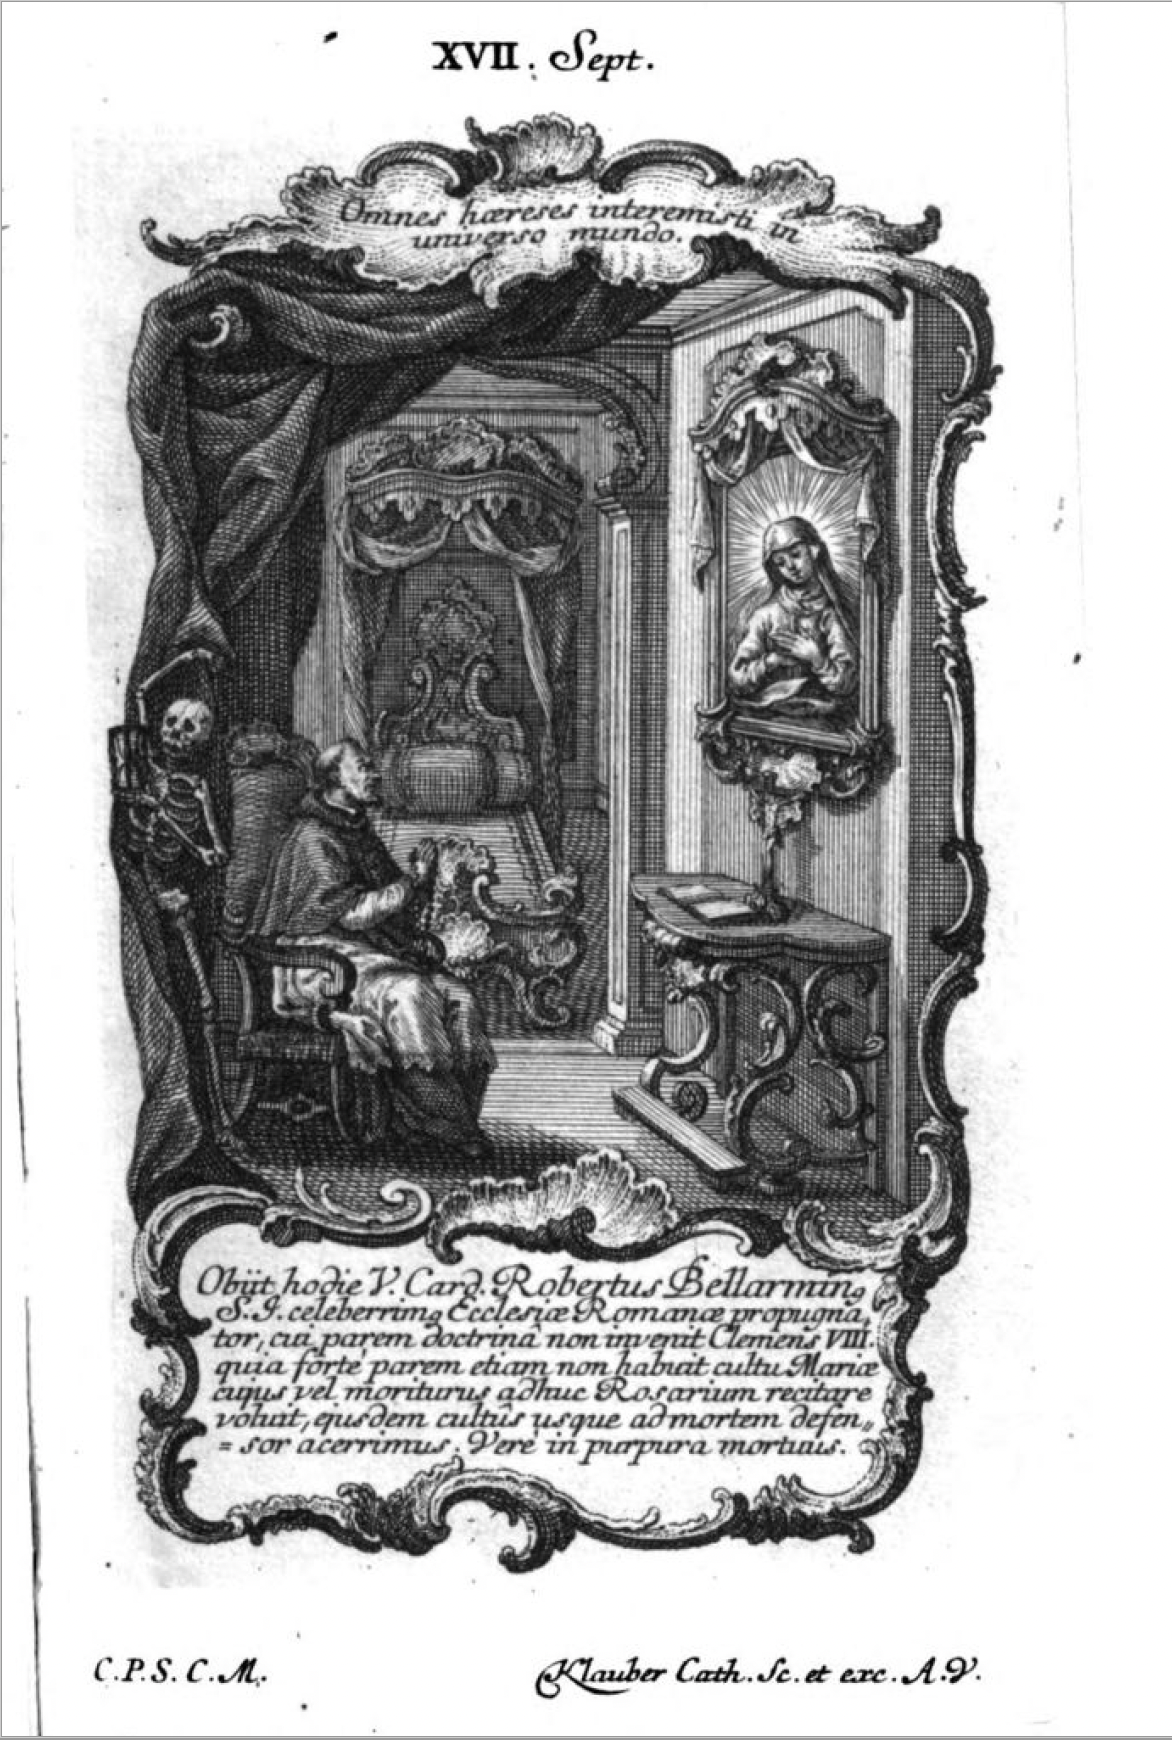 XVII. Sept.
Omnes hæreses interemisti in
universo mundo.
Obiit hodie V. Card. Robertus Bellarminꝰ
S. I. celeberrimꝰ Ecclesiæ Romanæ propugna,
tor, cui parem doctrinâ non invenit Clemens VIII.
quia fortè parem etiam non habuit cultu Mariæ
cujus vel moriturus adhuc Rosarium recitare
voluit, ejusdem cultûs usque ad mortem defen„
= sor acerrimus. Verè in purpura mortuus.
C. P. S. C. M.
Klauber Cath. Sc. et exc. A. V.